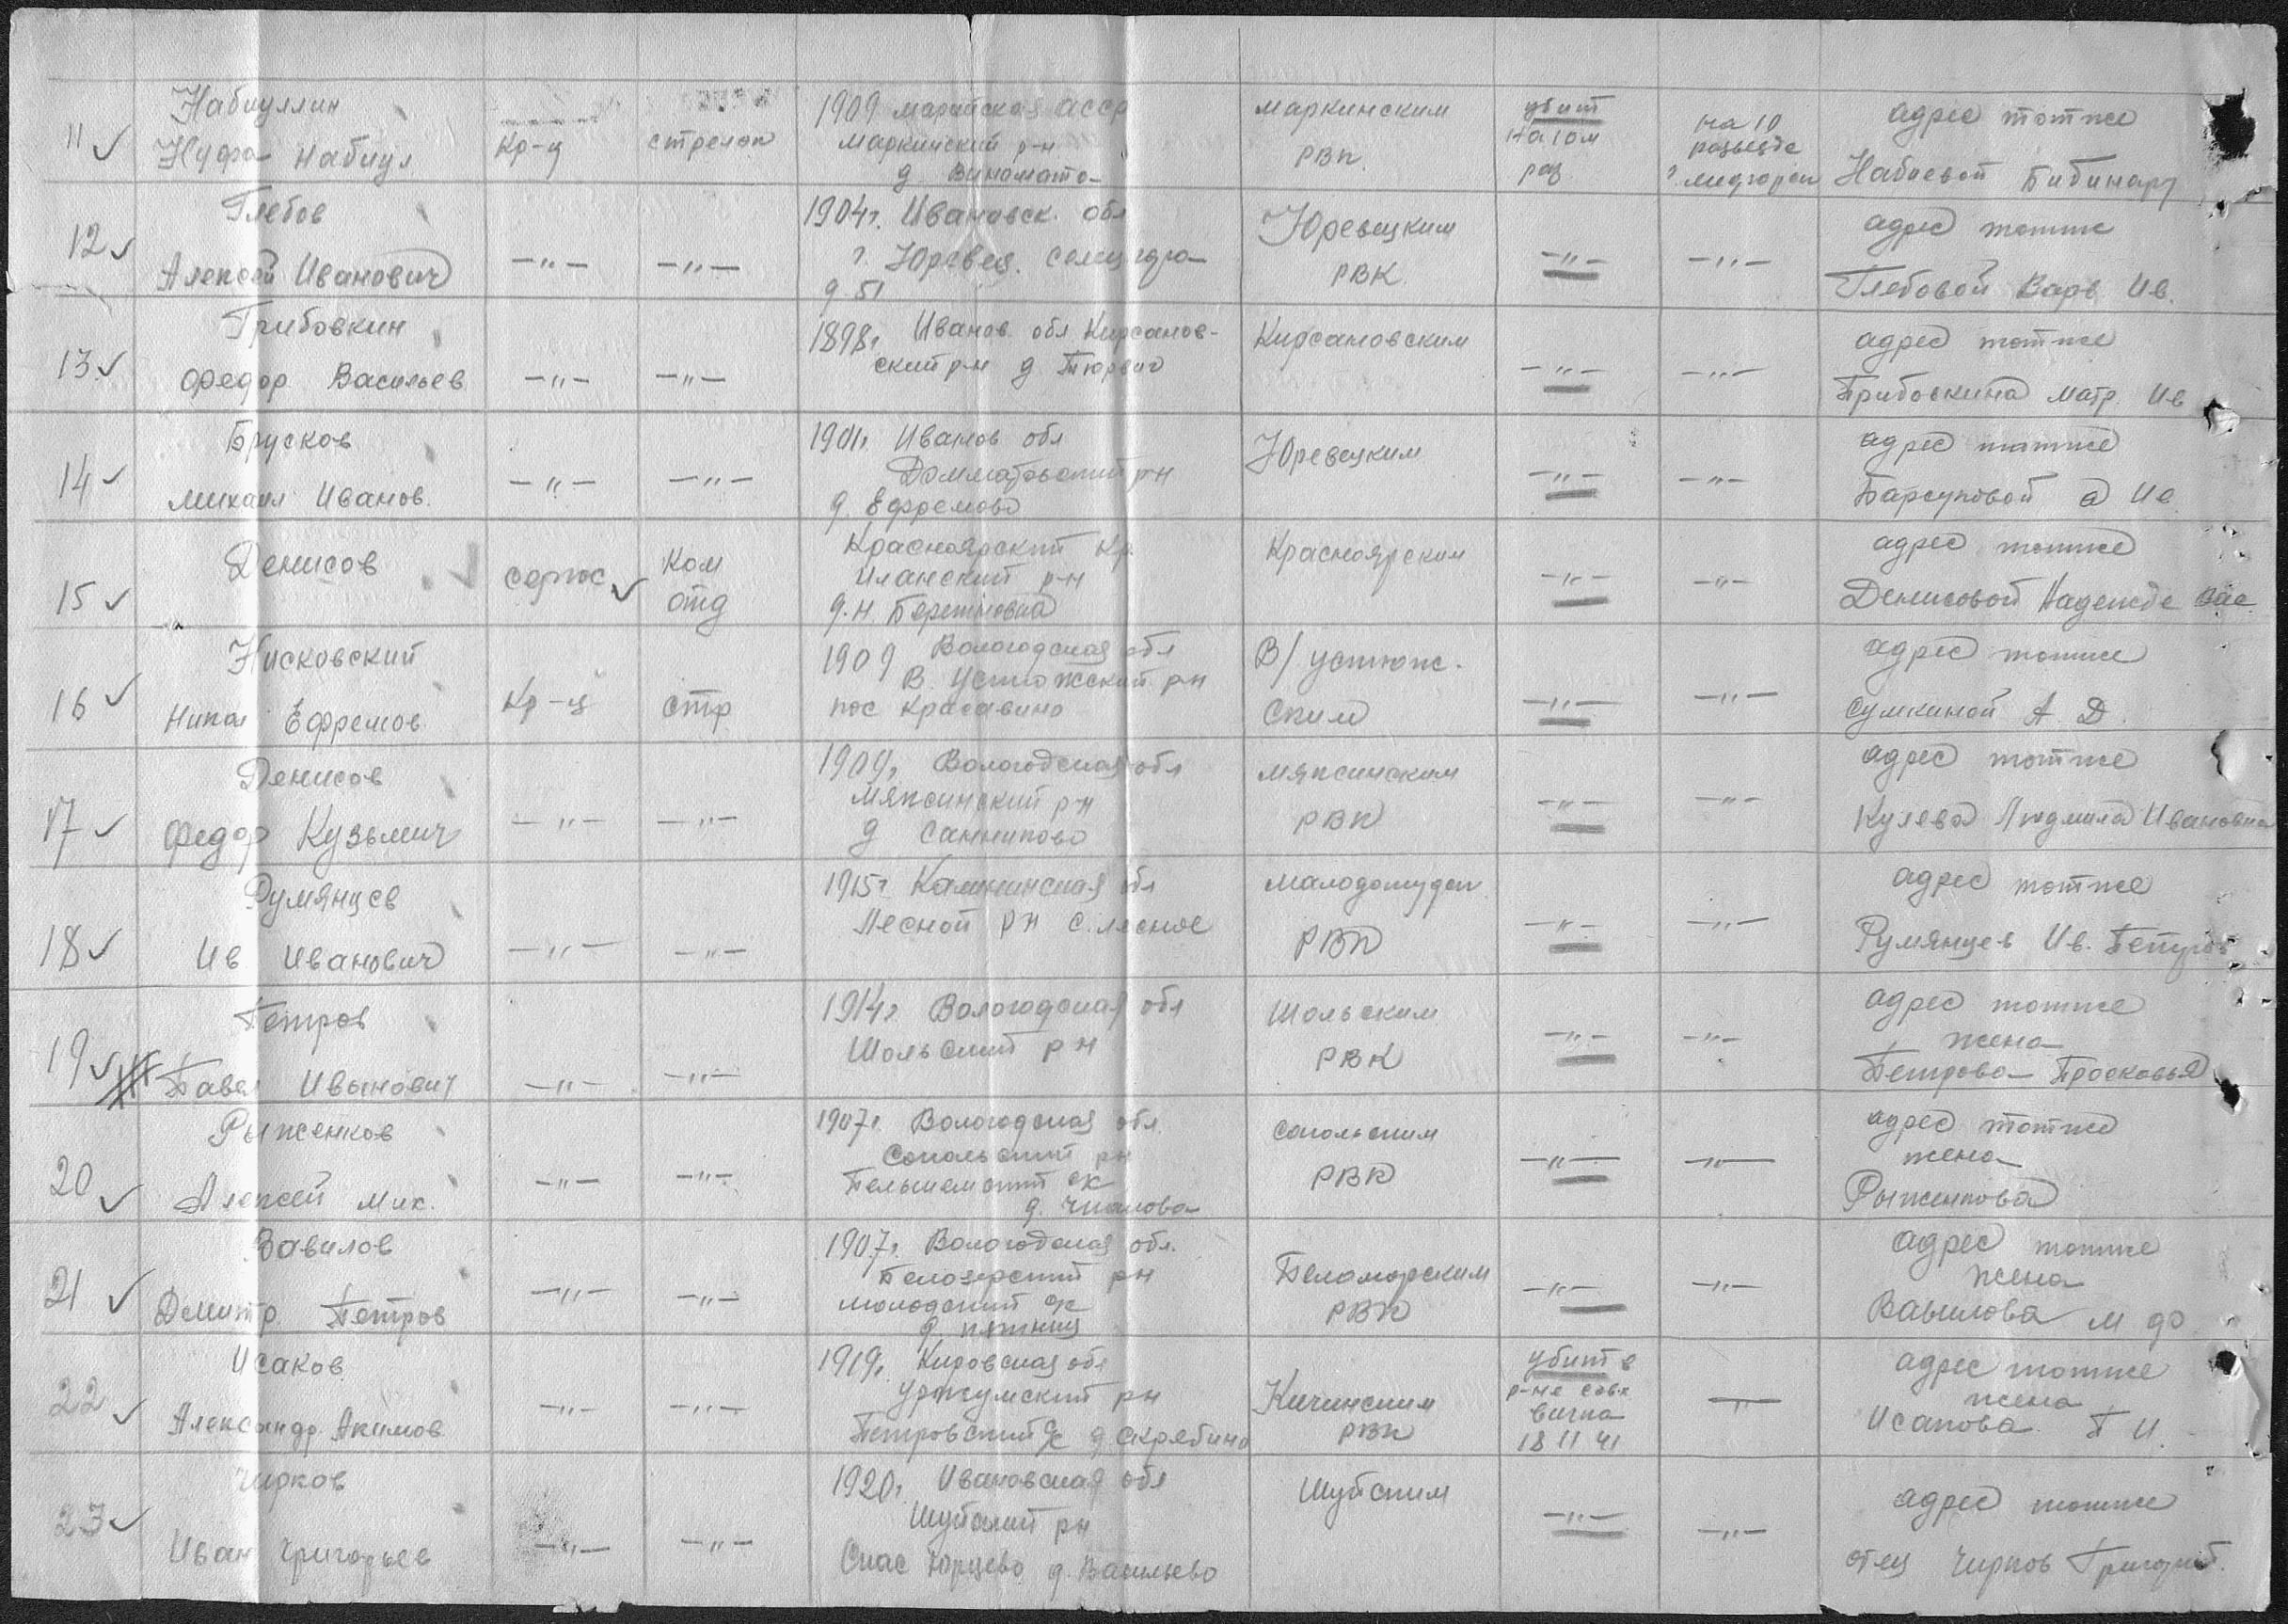 11 Набиуллин
Нуфа Набиул
Кр-ц
стрелок
1909 марийская АССР
Маркинский р-н
д.
маркинским
РВК
убит
На 10м
раз
на 10
разъезде
адрес тотже
Набиевой Бибинар
12 Глебов
Алексей Иванович
—"—
—"—
1904г. Ивановск. обл
г. Юревец.
д. 51
Юревецким
РВК
—"—
—"—
адрес тотже
Глебовой Варв Ив.
13 Грибовкин
Федор Васильев
—"—
—"—
1898г. Иванов. обл Кирсанов-
ский р-н д
Кирсановским
—"—
—"—
адрес тотже
Грибовкина Матр. Ив
14 Брусков
Михаил Иванов.
—"—
—"—
1901г. Иванов обл
рн
д. Ефремово
Юревецким
—"—
—"—
адрес тотже
Ив
15 Денисов
сержс
Ком
отд
Красноярский Кр.
Иланский р-н
д.н.
Красноярским
—"—
—"—
адрес тотже
Денисовой Надежде Вас
16 Нисковский
Никол Ефремов
Кр-ц
стр
1909 Вологодская обл
В. Устюжский р-н
пос Красавино
В/устюж.
ским
—"—
—"—
адрес тотже
Сумкиной А. Д.
17 Денисов
Федор Кузьмич
—"—
—"—
1909г. Вологодская обл
Мяксинский р-н
д Санниково
мяксинским
РВК
—"—
—"—
адрес тотже
Кулева Людмила Ивановна
18 Румянцев
Ив Иванович
—"—
—"—
1915г. Калининская обл
Лесной рн с. Лесное
РВК
—"—
—"—
адрес тотже
Румянцев Ив. Петров
19 Петров
Павел Иванович
—"—
—"—
1914г. Вологодская обл
Шольский р н
Шольским
РВК
—"—
—"—
адрес тотже
жена
Петрова Просковья
20 Рыженков
Алексей Мих.
—"—
—"—
1907г. Вологодская обл.
Сокольский рн
ск
д. Чианова
сокольским
РВК
—"—
—"—
адрес тотже
жена
Рыженкова
21 Вавилов
Дмитр. Петров
—"—
—"—
1907г. Вологодская обл.
Белозерский рн
ск
д.
Беломорским
РВК
—"—
—"—
адрес тотже
жена
Вавилова М Ф
22 Исаков
Александр Акимов
—"—
—"—
1919г. Кировская обл
Уржумский рн
Петровский ск д Скрябино
Кичинским
РВК
убит в
р-не совх
18 11 41
—
адрес тотже
жена
Исакова П И.
23 Чирков
Иван Григорьев
—"—
—"—
1920г. Ивановская обл
Шуйский рн
Спас Юрцево д. Васильево
Шуйским
—"—
—"—
адрес тотже
отец Чирков Григорий.